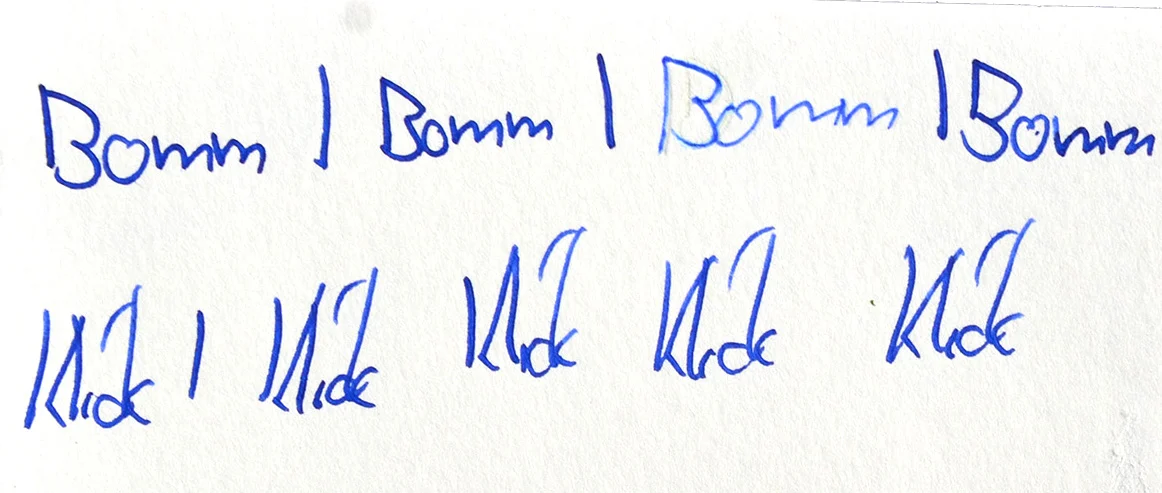 Bomm | Bomm | Bomm | Bomm
Klick | Klick Klick Klick Klick